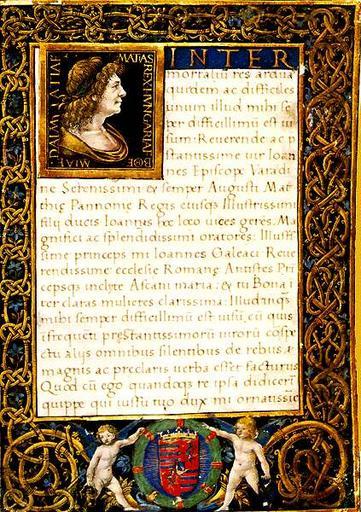 MATIAS REX HVNGARIAE BOE MIAE DALMATIAE
INTER
mortaliū res ardua
quidem ac difficiles
unum illud mihi se
per difficillimū est ui
sum: Reuerende ac p
stantissime uir Ioan
nes Episcope Varadi
ne Serenissimi et semper Augusti Mat
thie Pannonie Regis eiusqs Illustrissimi
filij ducis Ioannis hoc loco uices gerēs. Ma
gnifici ac splendidissimi oratores: Illust
sime princeps mi Ioannes Galeaci Reue
rendissime ecclesie Romane Antistes Pri
cepsqs inclyte Ascani maria: & tu Bona i
ter claras mulieres clarissima: Illudinqs
mihi semper difficillimū est uisū cū quis
ifrequēti prestantissimorū uirorū cōspe
ctu alijs omnibus silentibus de rebus
magnis ac preclaris uerba esset facturus
Quod cū ego quandoqs re ipsa didicerī
quippe qui iussu tuo dux mi ornatissie